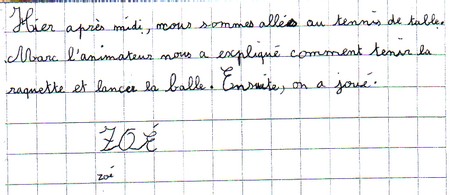 Hier après midi, nous sommes allés au tennis de table.
Marc l'animateur nous a expliqué comment tenir la
raquette et lancer la balle. Ensuite, on a joué.
ZOÉ
zoé